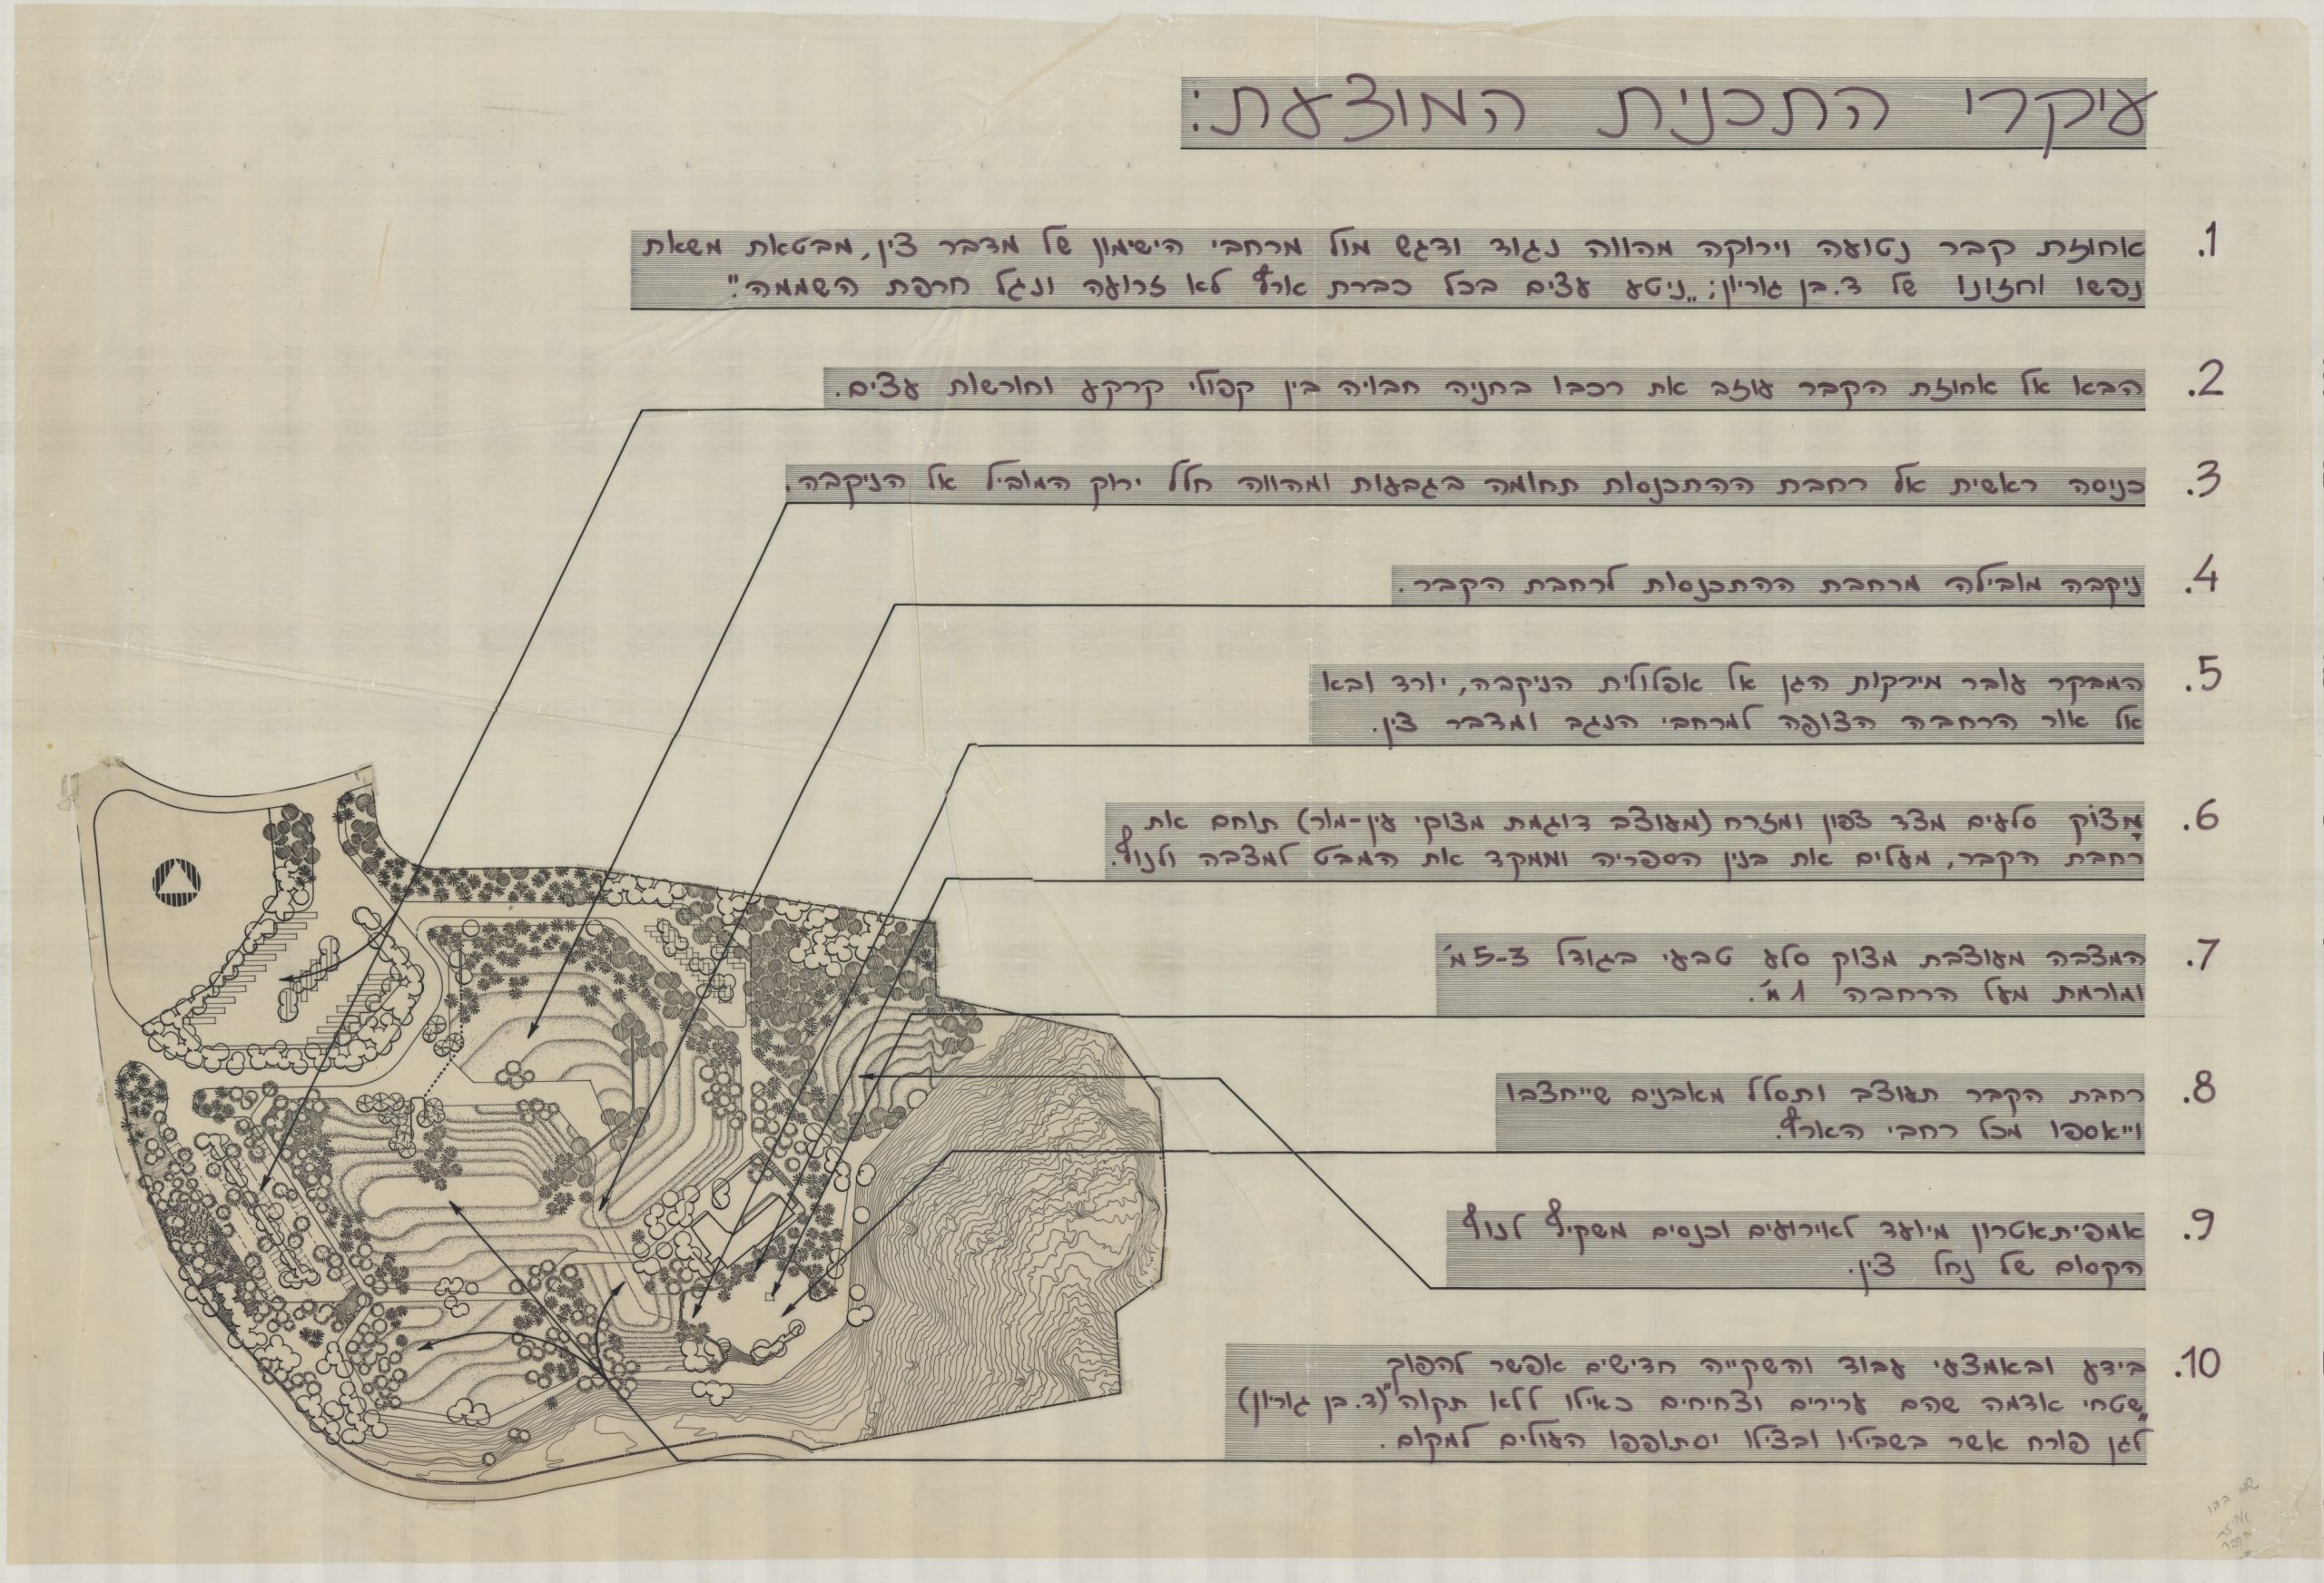 עיקרי התכנית המוצעת:
1. אחוזת קבר נטועה וירוקה מהווה נגוד ודגש מול מרחבי הישימון של מדבר צין, מבטאת משאת
נפשו וחזונו של ד. בן גוריון: "ניטע עצים בכל כברת ארץ לא זרועה ונגל חרפת השממה".
2. הבא אל אחוזת הקבר עוזב את רכבו בחניה חבויה בין קפולי קרקע וחורשות עצים.
3. כניסה ראשית אל רחבת ההתכנסות תחומה בגבעות ומהווה חלל ירוק המוביל אל הניקבה.
4. ניקבה מובילה מרחבת ההתכנסות לרחבת הקבר.
5. המבקר עובר מירקות הגן אל אפלולית הניקבה, יורד ובא
אל אור הרחבה הצופה למרחבי הנגב ומדבר צין.
6. מצוק סלעים מצד צפון ומזרח (מעוצב דוגמת מצוקי עין-מור) תוחם את
רחבת הקבר, מעלים את בנין הספריה וממקד את המבט למצבה ולנוף.
7. המצבה מעוצבת מצוק סלע טבעי בגודל 5-3 מ'
ומורמת מעל הרחבה 1 מ'.
8. רחבת הקבר תעוצב ותסלל מאבנים שייחצבו
וייאספו מכל רחבי הארץ.
9. אמפיתאטרון מיועד לאירועים וכנסים משקיף לנוף
הקסום של נחל צין.
10. בידע ובאמצעי עבוד והשקייה חדישים אפשר להפוך
"שטחי אדמה שהם ערירים וצחיחים כאילו ללא תקוה" (ד. בן גוריון)
לגן פורח אשר בשביליו ובצילו יסתופפו העולים למקום.